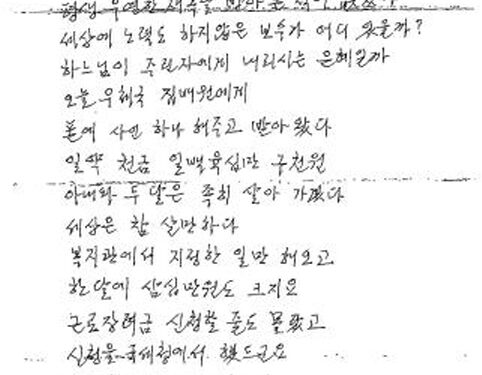 평생
세상에 노력도 하지않은 보수가 어디 있을까?
하느님이 주린자에게 내리시는 은혜일까
오늘 우체국 집배원에게
폰에 사인 하나 해주고 받아왔다
일약 천금 일백육십만 구천원
아내와 두달은 족히 살아 가겠다
세상은 참 살만하다
복지관에서 지정한 일만 해오고
한달에 삼십만원도 크지요
근로장려금 신청할 줄도 몰랐고
신청을 국세청에서 했드군요